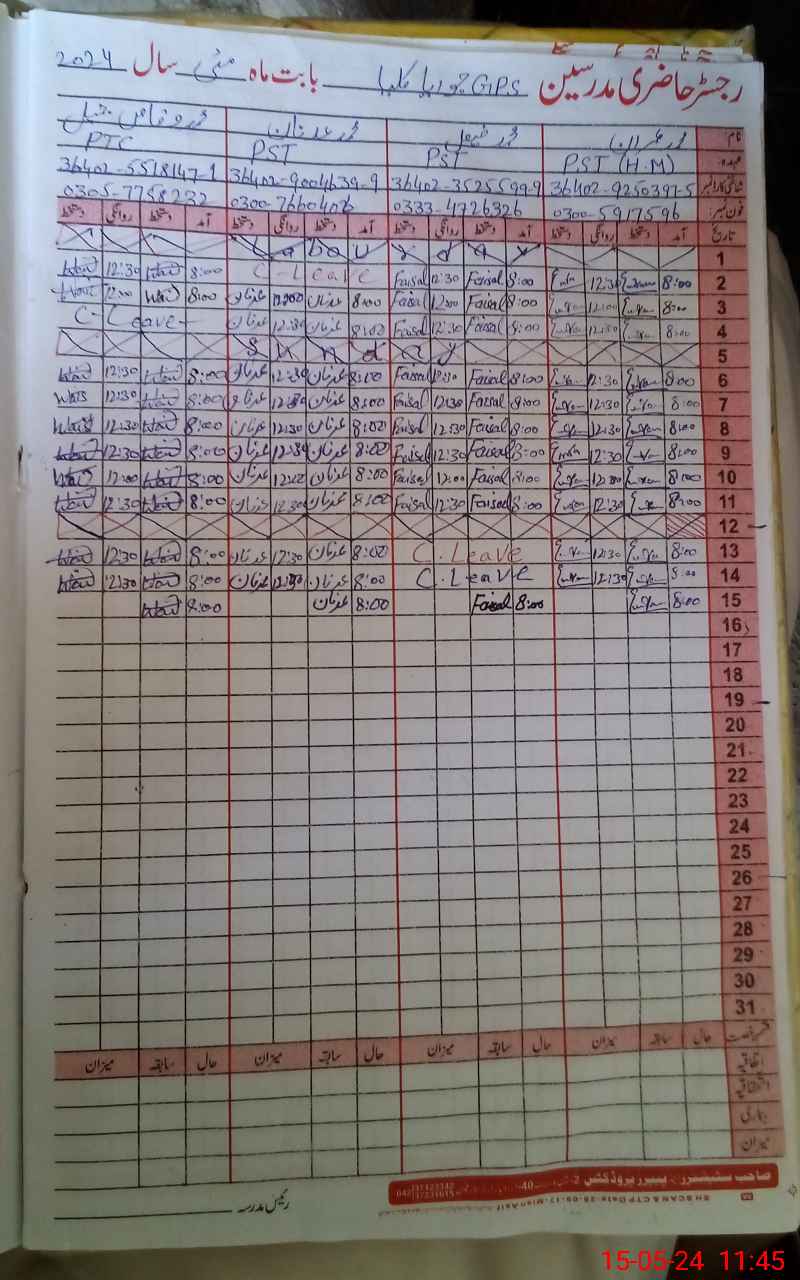 رجسٹر حاضری مدرسین GPS چوریا کلیا بابت ماہ مئی سال 2024
نام محمد عمران محمد فیصل محمد عدنان محمد وقاص جمیل
عہدہ PST (H.M) PST PST PTC
شناختی کارڈ نمبر 36402-9250397-5 36402-3525599-9 36402-9004639-9 36402-5518147-1
فون نمبر: 0300-5917596 0333-4726326 0300-7660406 0305-7758232
تاریخ آمد دستخط روانگی دستخط آمد دستخط روانگی دستخط آمد دستخط روانگی دستخط آمد دستخط روانگی دستخط
1 Labour day
2 8:00 12:30 8:00 Faisal 12:30 Faisal C-Leave 8:00 12:30
3 8:00 12:00 8:00 Faisal 12:00 Faisal 8:00 عدنان 12:00 عدنان 8:00 12:00
4 8:00 12:30 8:00 Faisal 12:30 Faisal 8:00 عدنان 12:30 عدنان C-Leave-
5 Sunday
6 8:00 12:30 8:00 Faisal 12:30 Faisal 8:00 عدنان 12:30 عدنان 8:00 12:30
7 8:00 12:30 8:00 Faisal 12:30 Faisal 8:00 عدنان 12:30 عدنان 8:00 12:30
8 8:00 12:30 8:00 Faisal 12:30 Faisal 8:00 عدنان 12:30 عدنان 8:00 12:30
9 8:00 12:30 8:00 Faisal 12:30 Faisal 8:00 عدنان 12:30 عدنان 8:00 12:30
10 8:00 12:00 8:00 Faisal 12:00 Faisal 8:00 عدنان 12:00 عدنان 8:00 12:00
11 8:00 12:30 8:00 Faisal 12:30 Faisal 8:00 عدنان 12:30 عدنان 8:00 12:30
12
13 8:00 12:30 C.Leave 8:00 عدنان 12:30 عدنان 8:00 12:30
14 8:00 12:30 C.Leave 8:00 عدنان 12:30 عدنان 8:00 12:30
15 8:00 8:00 Faisal 8:00 عدنان 8:00
16
17
18
19
20
21
22
23
24
25
26
27
28
29
30
31
قسم رخصت حال سابقہ میزان حال سابقہ میزان حال سابقہ میزان حال سابقہ میزان
اتفاقیہ
استحقاقیہ
بیماری
میزان
رئیس مدرسہ
15-05-24 11:45